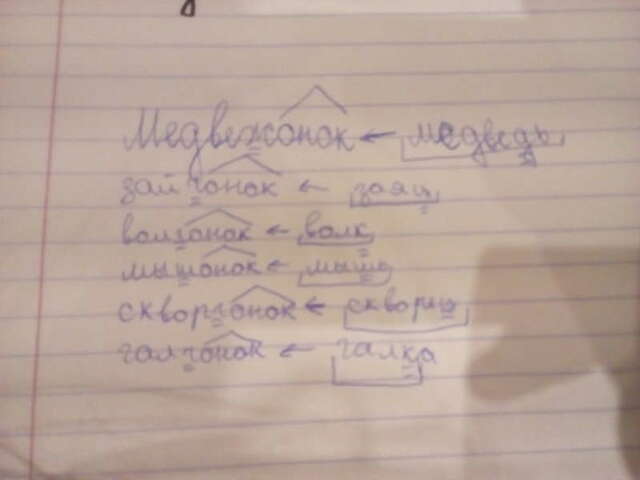 Медвежонок ← медведь
зайчонок ← заяц
волчонок ← волк
мышонок ← мышь
скворчонок ← скворец
галчонок ← галка